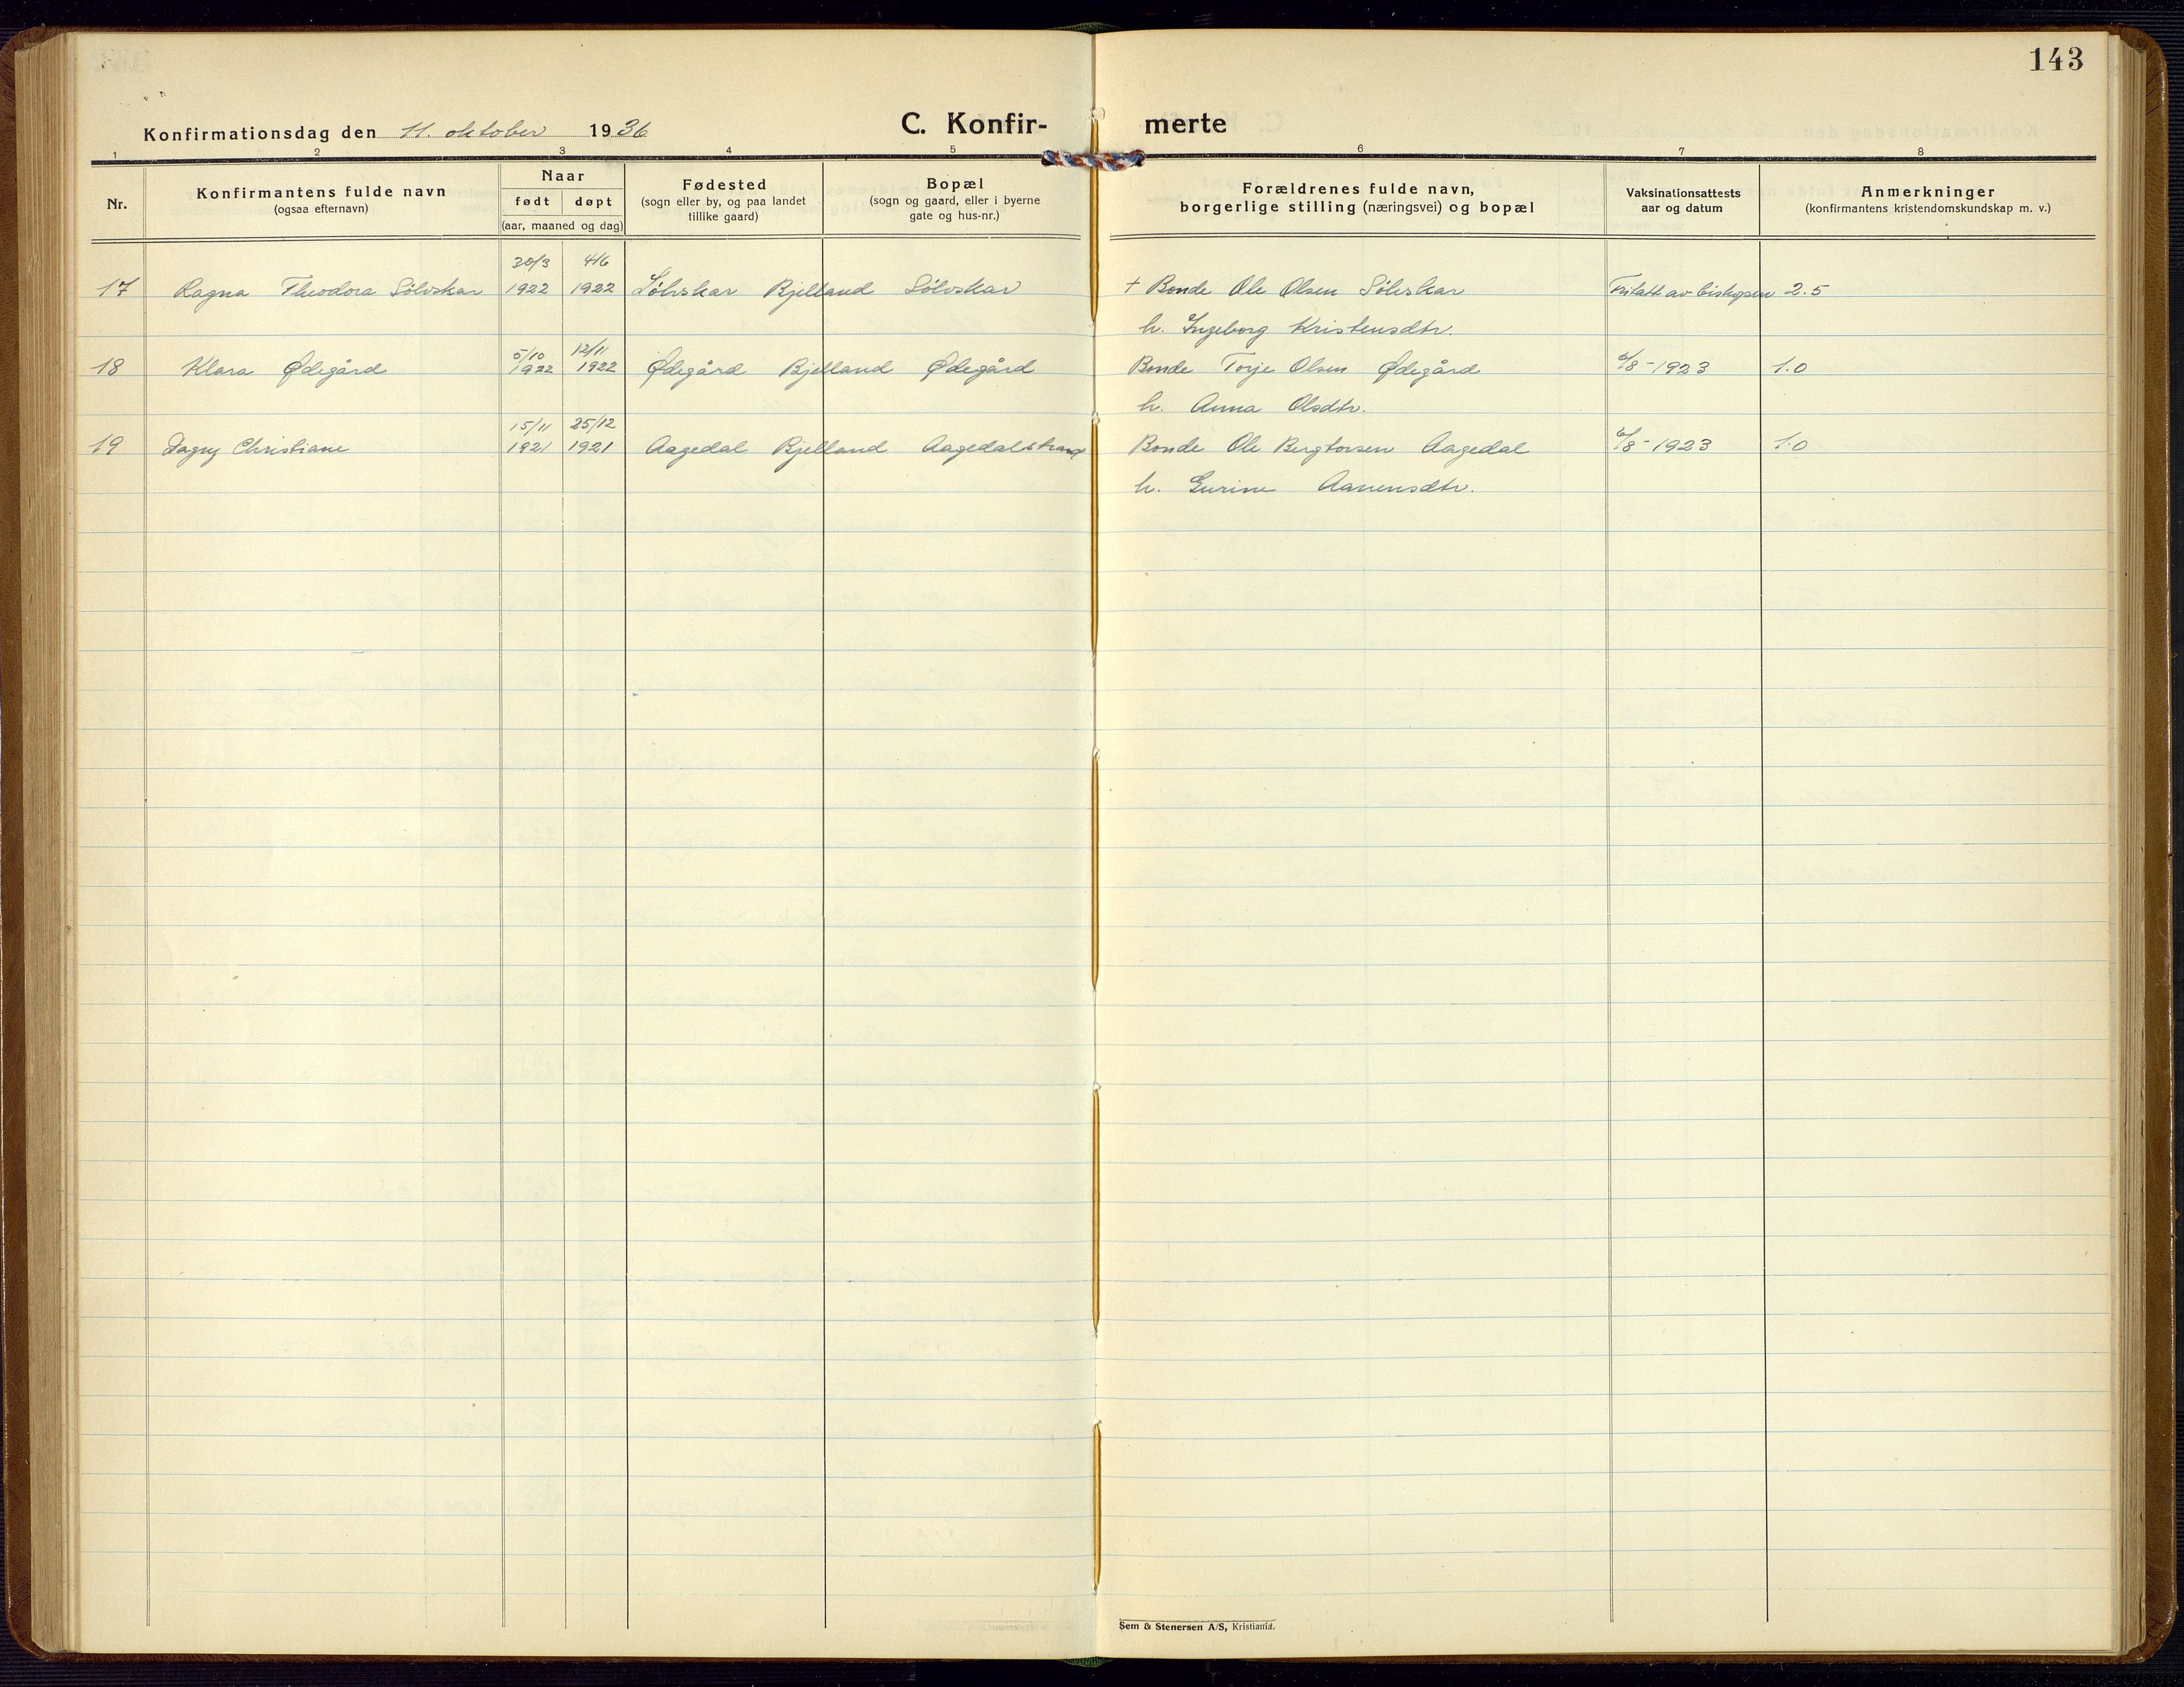 143
Konfirmationsdag den 11. oktober 1936
C. Konfir- merte
1 2 3 4 5 6 7 8
Nr.
Konfirmantens fulde navn
(ogsaa efternavn)
Naar
født døpt
(aar, maaned og dag)
Fødested
(sogn eller by, og paa landet
tillike gaard)
Bopæl
(sogn og gaard, eller i byerne
gate og hus-nr.)
Forældrenes fulde navn,
borgerlige stilling (næringsvei) og bopæl
Vaksinationsattests
aar og datum
Anmerkninger
(konfirmantens kristendomskundskap m. v.)
30/3 4/6
17 Ragna Theodora Sölvskar 1922 1922 Sölvskar Bjelland Sölvskar + Bonde Ole Olsen Sölvskar Fritatt av biskopen 2.5
h. Ingeborg Kristensdtr.
5/10 12/11
18 Klara Ødegård 1922 1922 Ødegård Bjelland Ødegård Bonde Torje Olsen Ødegård 6/8-1923 1.0
h. Anna Olsdtr.
15/11 25/12
19 Dagny Christiane 1921 1921 Aagedal Bjelland Aagedalstrand Bonde Ole Bergtorsen Aagedal 6/8-1923 1.0
h. Gurine Aanensdtr.
Sem & Stenersen A/S, Kristiania.